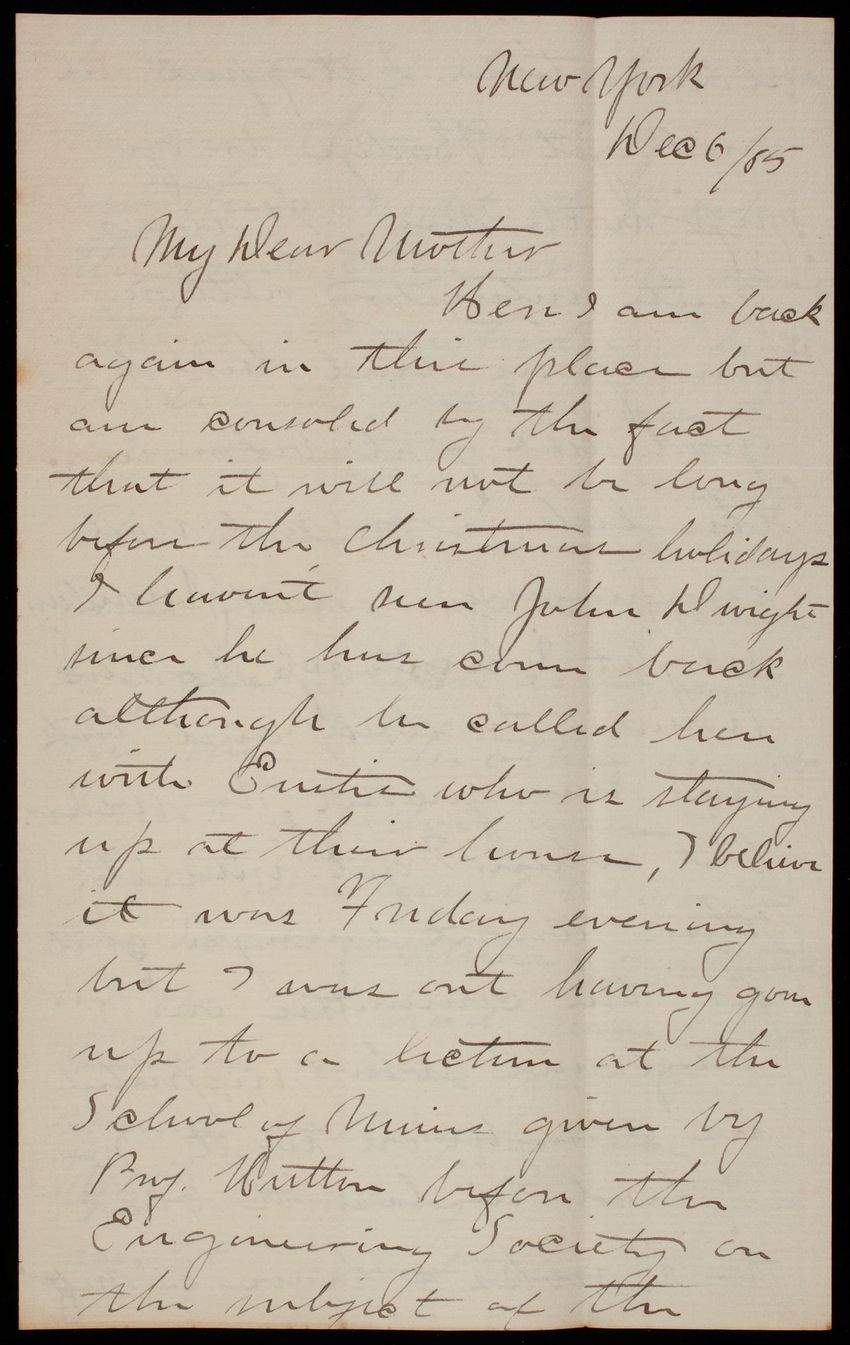 New York
Dec 6/85
My Dear Mother
Here I am back
again in this place but
am consoled by the fact
that it will not be long
before the Christmas holidays
I haven't seen John Dwight
since he has come back
although he called here
with Eustis who is staying
up at their house, I believe
it was Friday evening
but I was out having gone
up to a lecture at the
School of Mines given by
Prof. Hutton before the
Engineering Society on
the subject of the